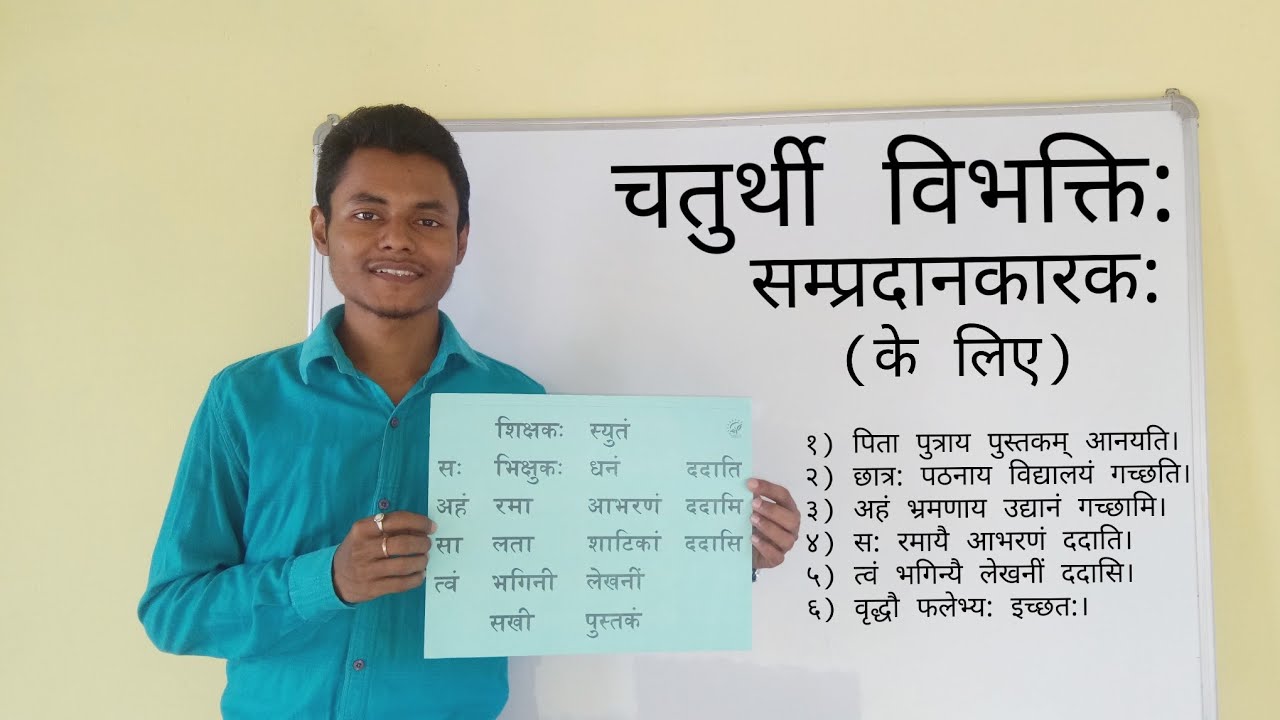 चतुर्थी विभक्ति:
सम्प्रदानकारक:
(के लिए)
१) पिता पुत्राय पुस्तकम् आनयति।
२) छात्र: पठनाय विद्यालयं गच्छति।
३) अहं भ्रमणाय उद्यानं गच्छामि।
४) स: रमायै आभरणं ददाति।
५) त्वं भगिन्यै लेखनीं ददासि।
६) वृद्धौ फलेभ्य: इच्छत:।
शिक्षकः स्युतं
सः भिक्षुकः धनं ददाति
अहं रमा आभरणं ददामि
सा लता शाटिकां ददासि
त्वं भगिनी लेखनीं
सखी पुस्तकं